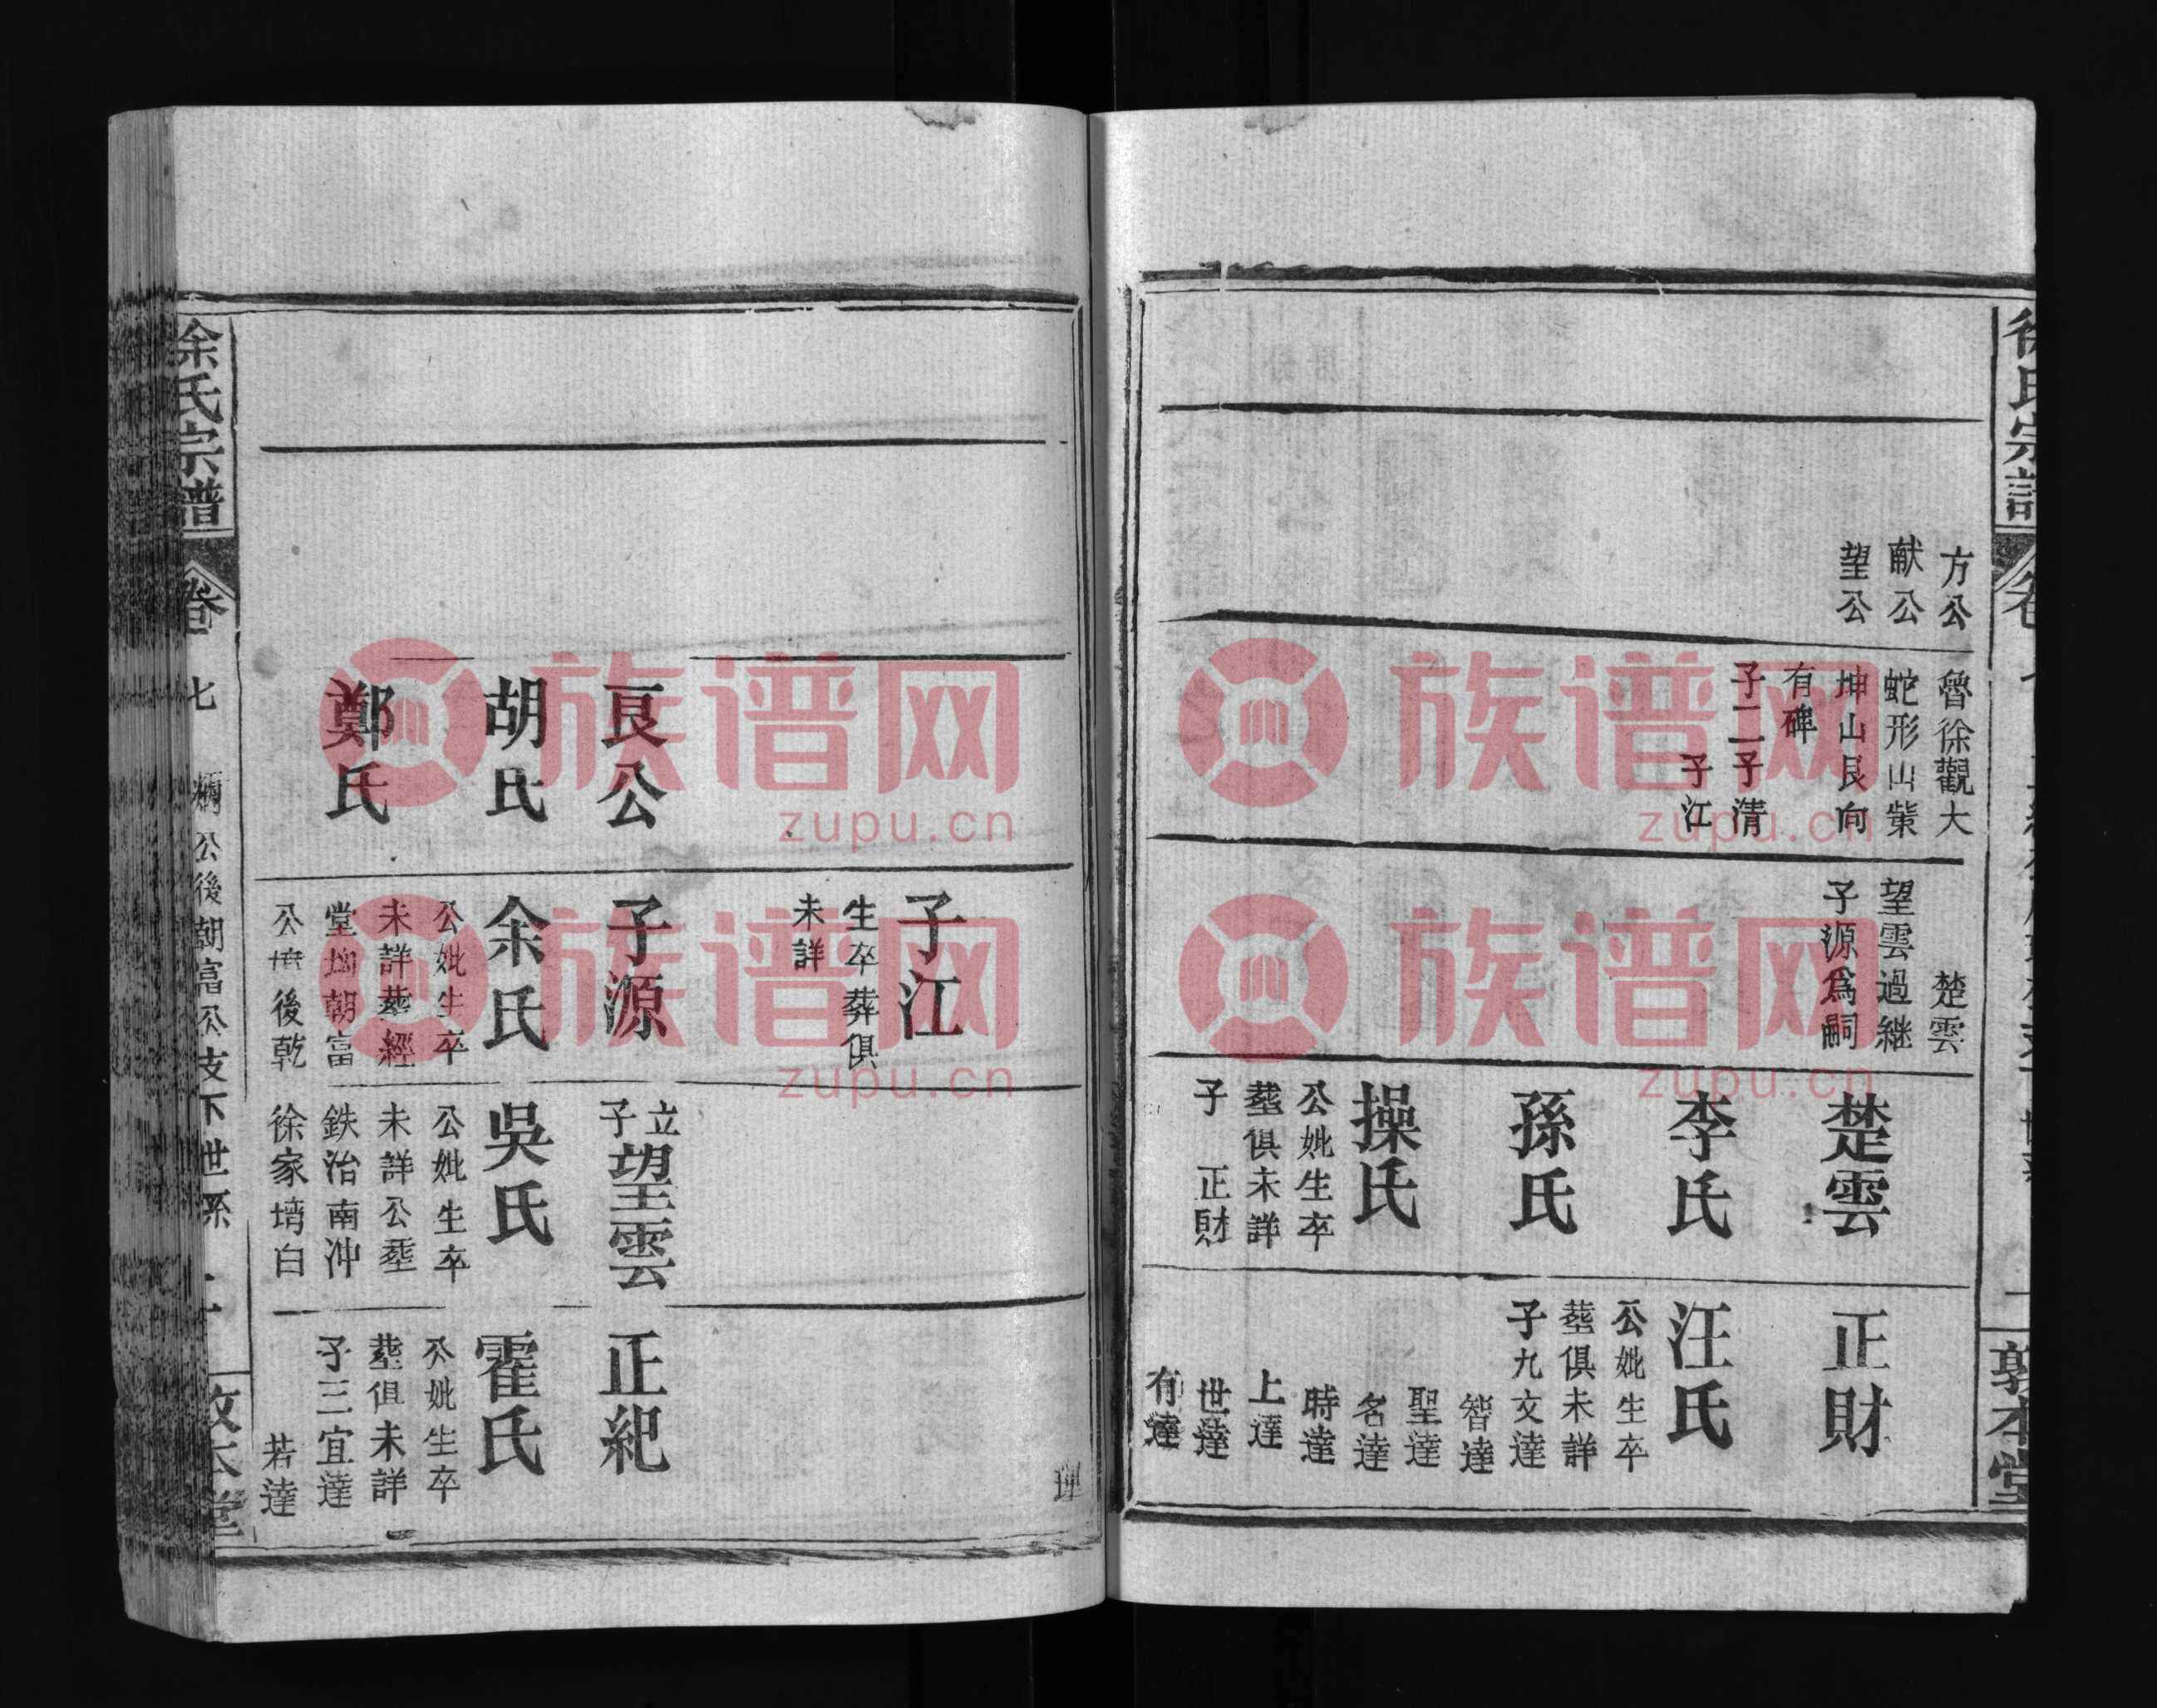 方公
献公
望公
魯徐觀大
蛇形山葬
坤山艮向
有碑
子二子清
子江
楚雲
望雲過継
子源爲嗣
楚雲
李氏
孫氏
操氏
公妣生卒
葬俱未詳
子 正財
正財
汪氏
公妣生卒
葬俱未詳
子九文達
智達
聖達
名達
時達
上達
世達
有達
徐氏宗譜
敦本堂
良公
胡氏
鄭氏
子江
生卒葬俱
未詳
子源
余氏
公妣生卒
未詳葬經
堂坳朝富
公墳後乾
立子望雲
吳氏
公妣生卒
未詳公葬
鉄治南冲
徐家塆白
正紀
霍氏
公妣生卒
葬俱未詳
子三宜達
若達
徐氏宗譜
卷七
公後朝富公支下世系
敦本堂
族谱网
zupu.cn
族谱网
zupu.cn
族谱网
zupu.cn
族谱网
zupu.cn